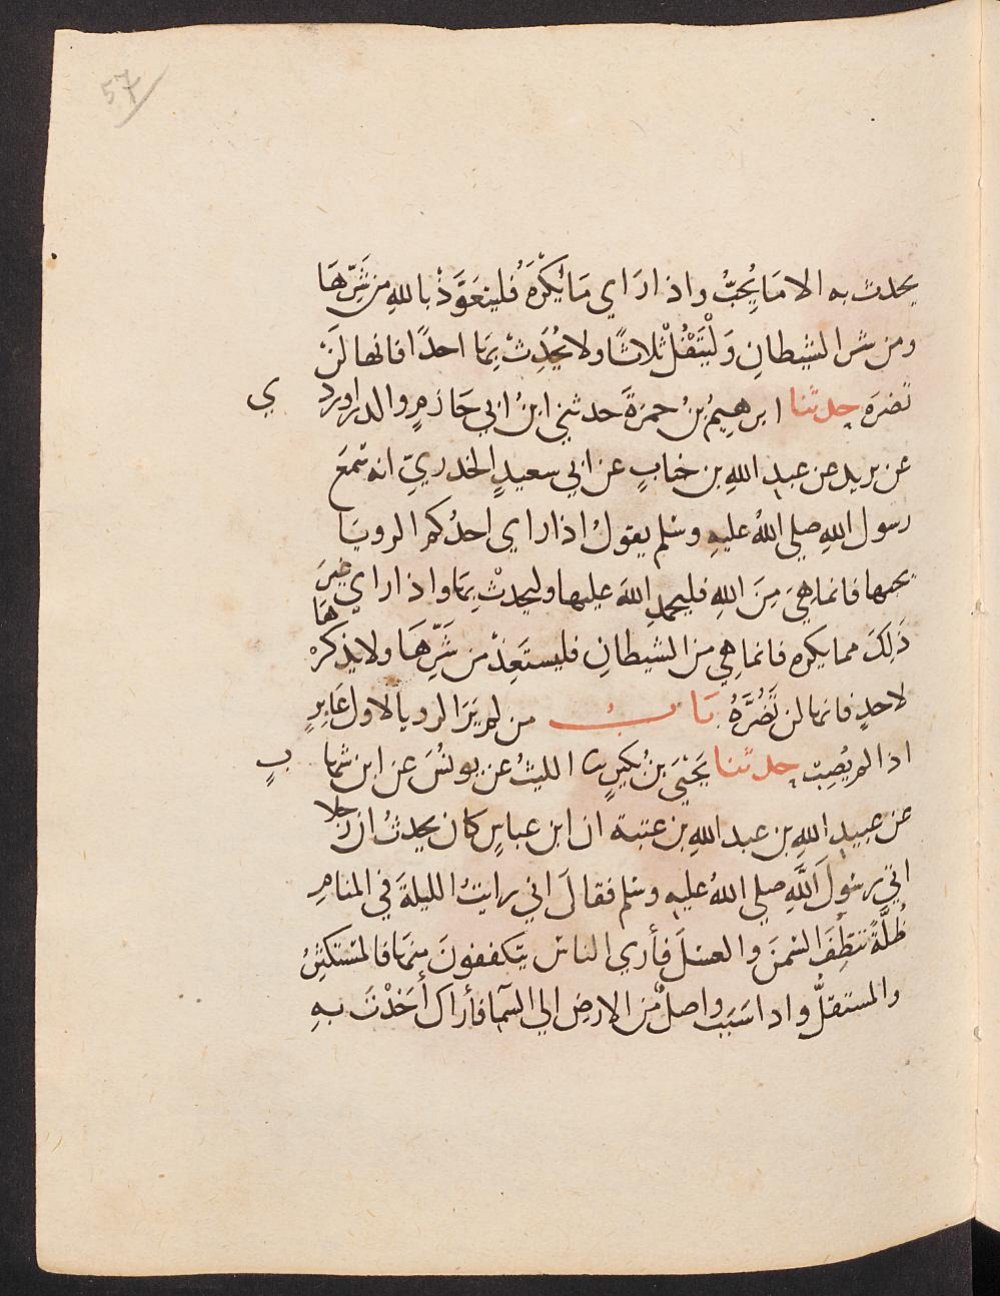 57
يحدث به الا مَا يُحِبُّ واذا رَاي مَا يَكْرَهُ فلينعَوَّذْ باللهِ من شَرِّهَا
ومن شر الشيطانِ وَلْيَتْفُلْ ثلاثًا ولا يُحَدِثْ بِهَا احدًا فانها لَنْ
تضرهَ حدثنا ابرهيمُ بنُ حمزةَ حدثني ابنُ ابي حَازمٍ والدراورد ي
عن يزيد عن عبد اللهِ بن خبابٍ عن ابي سعيدٍ الخدريِّ انه سَمعَ
رسول اللهِ صلي اللهُ عليهِ وسَلم يقولُ اذا راي احدُكم الرويَا
يحبها فانما هِيَ مِنَ اللهِ فليحمدِ اللهَ عليها وليحدثْ بِهَا واذا راي غيرَ
ذَلِكَ مما يكره فانما هِي من الشيطانِ فليستَعِذْ من شَرِّهَا ولا يذكرْ هَا
لاحدٍ فانها لن تَضُرَّهُ بَابُ من لم يَرَ الرويا لاول عَابِرٍ
اذا لم يُصِبْ حدثنا يَحْيَي بنُ بُكيرٍ ثنا الليثُ عن يونُسَ عن ابن شها بٍ
عن عبيدِ اللهِ بن عبد اللهِ بن عتبة ان ابن عباسٍ كان يحدثُ ان رَجلا
اتي رسُولَ اللَّهِ صلي اللهُ عليهِ وسَلم فقالَ اني رايتُ الليلةَ في المنامِ
ظُلَّةً تنطِفُ السَّمنَ والعسَلَ فأري الناسَ يتكففونَ منهَا فالمستكثرُ
والمستقلُّ واذا سَبَبٌ واصلٌ مِنَ الارضِ الي السَّمآ فأراكَ أَخَذْتَ بهِ